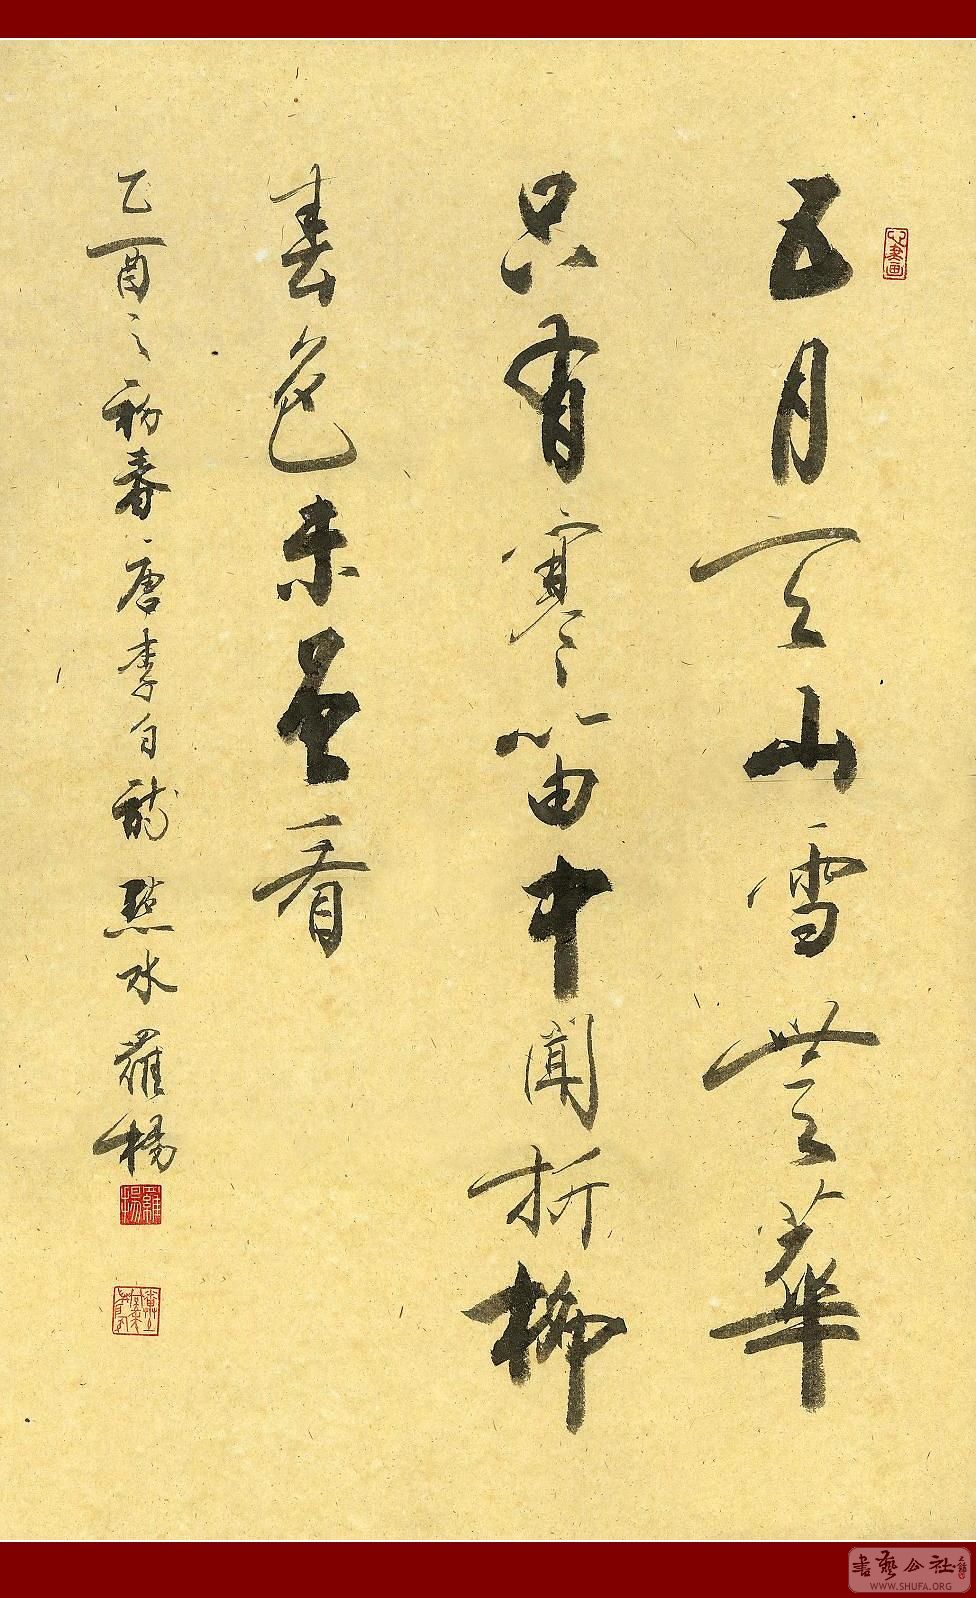 五月天山雪無華
只有寒笛中聞折柳
春色未曾看
乙酉之初春唐李白詩點水羅楊
書藝公社
WWW.SHUFA.ORG